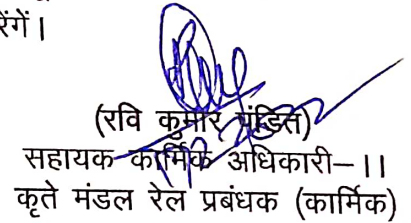 रेंगें।
(रवि कुमार पंडित)
सहायक कार्मिक अधिकारी–II
कृते मंडल रेल प्रबंधक (कार्मिक)